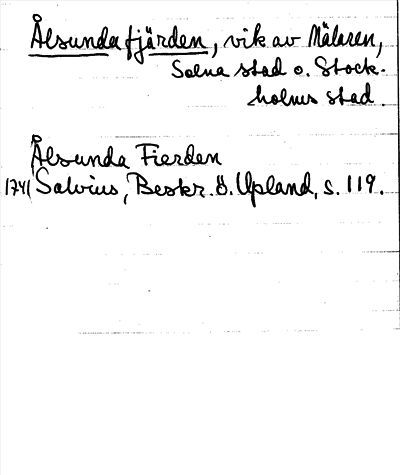 Ålsundafjärden, vik av Mälaren,
Solna stad o. Stock-
holms stad.
Ålsunda Fierden
1741 Salvius, Beskr. ö. Upland, s. 119.